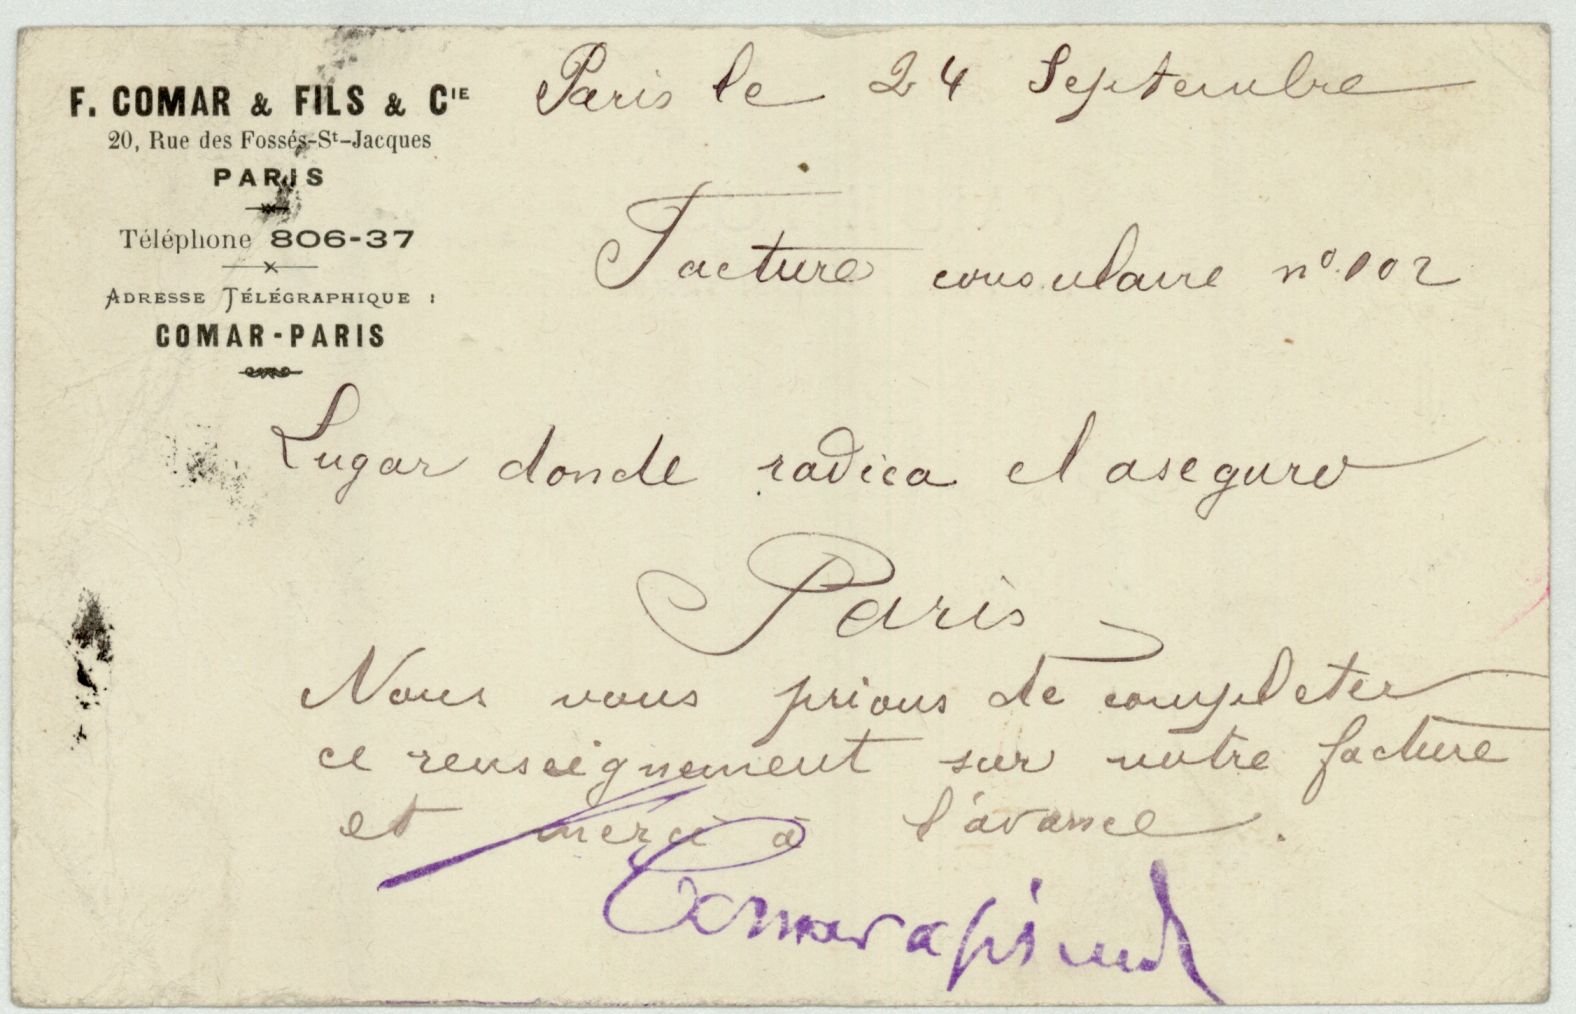 F. COMAR & FILS & CIE
20, Rue des Fossés-St-Jacques
PARIS
Téléphone 806-37
ADRESSE TÉLÉGRAPHIQUE :
COMAR-PARIS
Paris le 24 Septembre
Facture consulaire nº 102
Lugar donde radica el aseguro
Paris
Nous vous prions de completer
ce renseignement sur notre facture
et merci à l'avance.
Comar